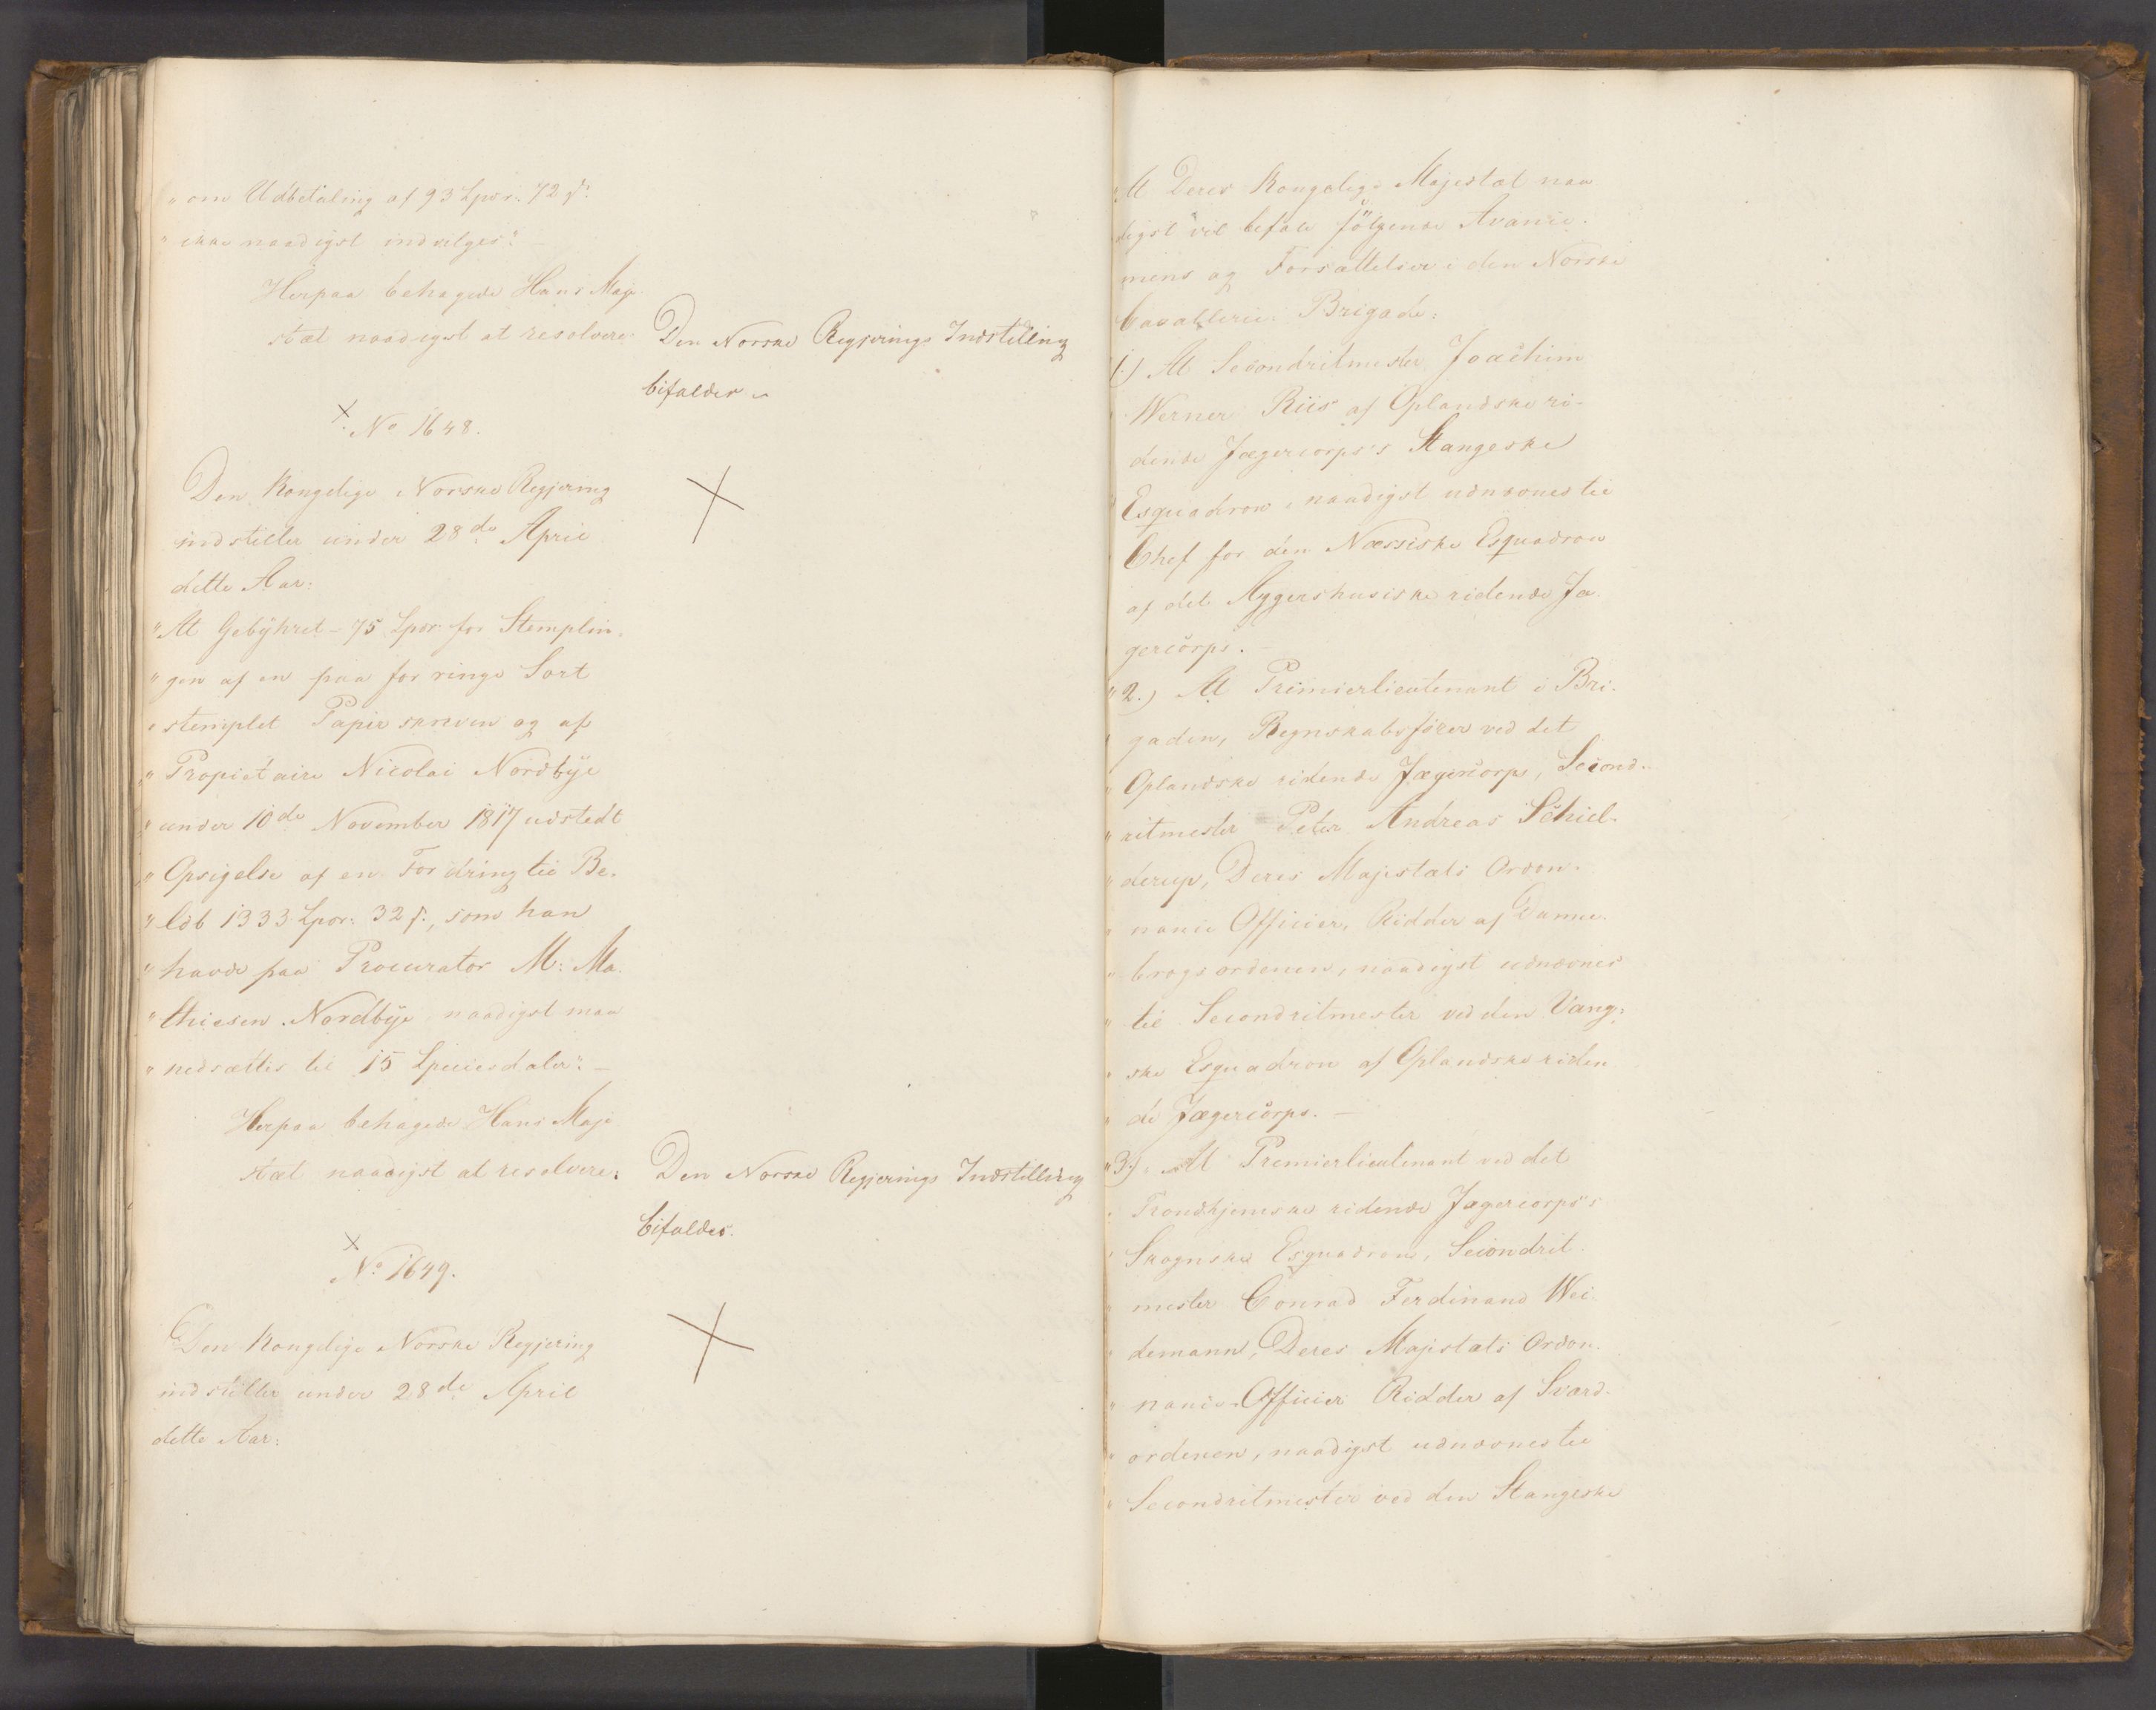 "om Udbetaling af 93 Spdr. 72 s.
"ikke naadigst indvilges". –
Herpaa behagede Hans Maje-
stæt naadigst at resolvere:
Den Norske Regjerings Indstilling
bifaldes.
No 1648.
Den Kongelige Norske Regjering
indstiller under 28de April
dette Aar:
"At Gebyhret – 75 Spdr. for Stemplin-
"gen af en paa for ringe Sort
"stemplet Papir skreven og af
"Propietaire Nicolai Nordbye
"under 10de November 1817 udstedt
"Opsigelse af en Fordring til Be-
"løb 1333 Spdr. 32 s., som han
"havde paa Procurator M. Ma-
"thiesen Nordbye, naadigst maa
"nedsættes til 15 Speciesdaler". –
Herpaa behagede Hans Maje-
stæt naadigst at resolvere:
Den Norske Regjerings Indstilling
bifaldes.
No 1649.
Den Kongelige Norske Regjering
indstiller under 28de April
dette Aar:
"At Deres Kongelige Majestæt naa-
digst vil befale følgende Avance-
mens og Forsættelser i den Norske
Cavallerie-Brigade:
1.) At Secondritmester Joachim
Werner Riis af Oplandske ri-
dende Jægercorps's Stangeske
Esquadron, naadigst udnævnes til
Chef for den Næssiske Esquadron
af det Aggershusiske ridende Jæ-
gercorps. –
"2.) At Premierlieutenant i Bri-
gaden, Regnskabsfører ved det
"Oplandske ridende Jægercorps, Second-
"ritmester Peter Andreas Schiel-
"derup, Deres Majestæts Ordon-
"nance Officier, Ridder af Danne-
"brogsordenen, naadigst udnævnes
"til Secondritmester ved den Vang-
"ske Esquadron af Oplandske riden-
"de Jægercorps. –
"3.) At Premierlieutenant ved det
"Trondhjemske ridende Jægercorps's
"Skognske Esquadron, Secondrit-
"mester Conrad Ferdinand Wei-
"demann, Deres Majestæts Ordon-
"nance-Officier Ridder af Sværd-
"ordenen, naadigst udnævnes til
"Secondritmester ved den Stangeske